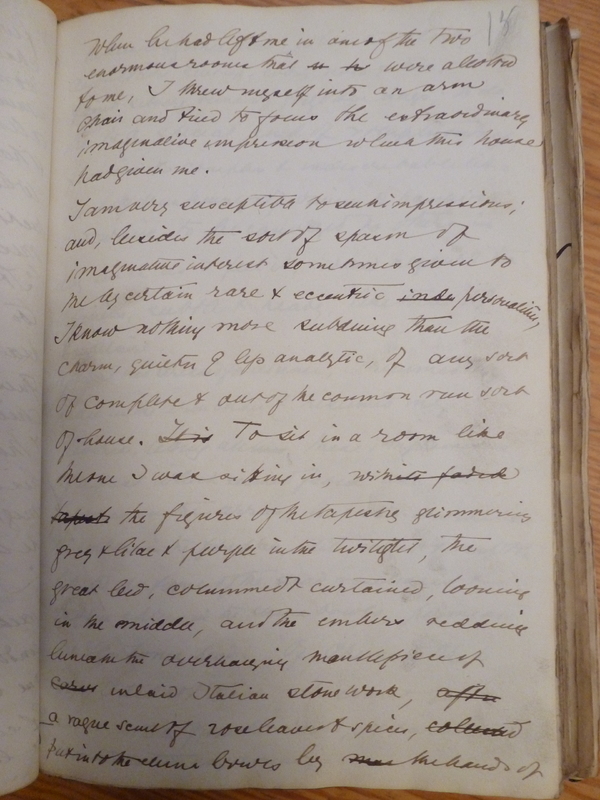 15
When he had left me in one of the two
enormous rooms that were allotted
to me, I threw myself into an arm
chair and tried to focus the extraordinary
imaginative impression which this house
had given me.
I am very susceptible to such impressions;
and, besides the sort of spasm of
imaginative interest sometimes given to
me by certain rare & eccentric inde personalities,
I know nothing more subduing than the
charm, quieter & less analytic, of any sort
of complete & out of the common run sort
of house. It is To sit in a room like
the one I was sitting in, with its faded
tapest the figures of the tapestry glimmering
grey & lilac & purple in the twilight, the
great bed, columned & curtained, looming
in the middle, and the embers reddening
beneath the overhanging mantelpiece of
inlaid Italian stonework, after
a vague scent of rose leaves & spices, coloured
put into the china bowls by the hands of